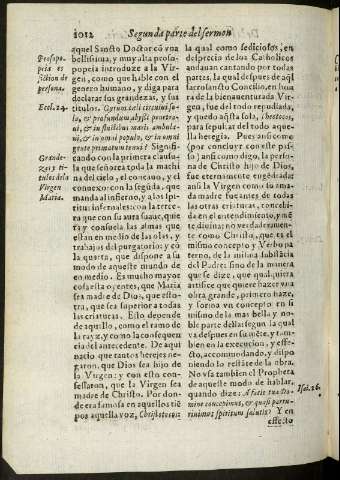 1012 Segunda parte del sermon
Prosopo-
peia es
fiction de
persona.
Eccl. 24.
Grande-
zas y ti-
tulos dela
Virgen
Maria.
aquel Sancto Doctor cō vna
bellissima, y muy alta proso-
popeia introduze a la Vir-
gen, como que hable con el
genero humano, y diga para
declarar sus grandezas, y sus
titulos. Gyrum cœli circuiui so-
la, & profundum abyssi penetra-
ui, & in fluctibus maris ambula-
ui, & in omni populo, & in omni
gente primatum tenui? Signifi-
cando con la primera clausu-
la que señorea toda la machi
na del cielo, el concauo, y el
connexo: con la segūda, que
manda al infierno, y a los spi-
ritus infernales: con la terce-
ra que con su aura suaue, que
ta y consuela las almas que
estan en medio de las olas, y
trabajos del purgatorio: y cō
la quarta, que dispone a su
modo de aqueste mundo de
en medio. Es mucho mayor
cosa estas oyentes, que Maria
sea madre de Dios, que esto-
tra, que sea superiora a todas
las criaturas. Esto depende
de aquello, como el ramo de
la rayz, y como la cōsequen
cia del antecedente. De aqui
nacio que tantos herejes ne-
garon, que Dios sea hijo de
la Virgen: y con esto con-
fessaron, que la Virgen sea
madre de Christo. Por don-
de era famosa en aquellos tiē
pos aquella voz, Christotocos:
la qual como sediciosos, en
desprecio de los Catholicos
andauan cantando por todas
partes. la qual despues de aql̄
sacrosancto Concilio, en hon
ra de la bienauenturada Vir-
gen, fue del todo repudiada,
y quedo aq̄sta sola, theotocos,
para sepultar del todo aque-
lla heregia. Pues ansi como
(por concluyr con este passo
pio) ansi como digo, la perso-
na de Christo hijo de Dios,
fue eternamente engēdrada:
ansi la Virgen como su ama-
da madre fue antes de todas
las otras criaturas, concebi-
da en el entendimiento, y mē
te diuina: no verdaderamen-
te como Christo, que es el
mismo concepto y Verbo pa
terno, de la misma substācia
del Padre: sino de la manera
que se dize, que qualquiera
artifice que quiere hazer vna
obra grande, primero haze,
y forma vn concepto en si
mismo de la mas bella y no-
ble parte della: segun la qual
va despues en su mēte, y tam-
bien en la execucion, y effe-
cto, accommodando, y dispo
niendo lo restāte de la obra.
No vsa tambien el Propheta
de aqueste modo de hablar,
quando dize: A facie tua Do-
mine concepimus, & quasi partu-
riuimus spiritum salutis? Y en
effecto
Isai. 26.